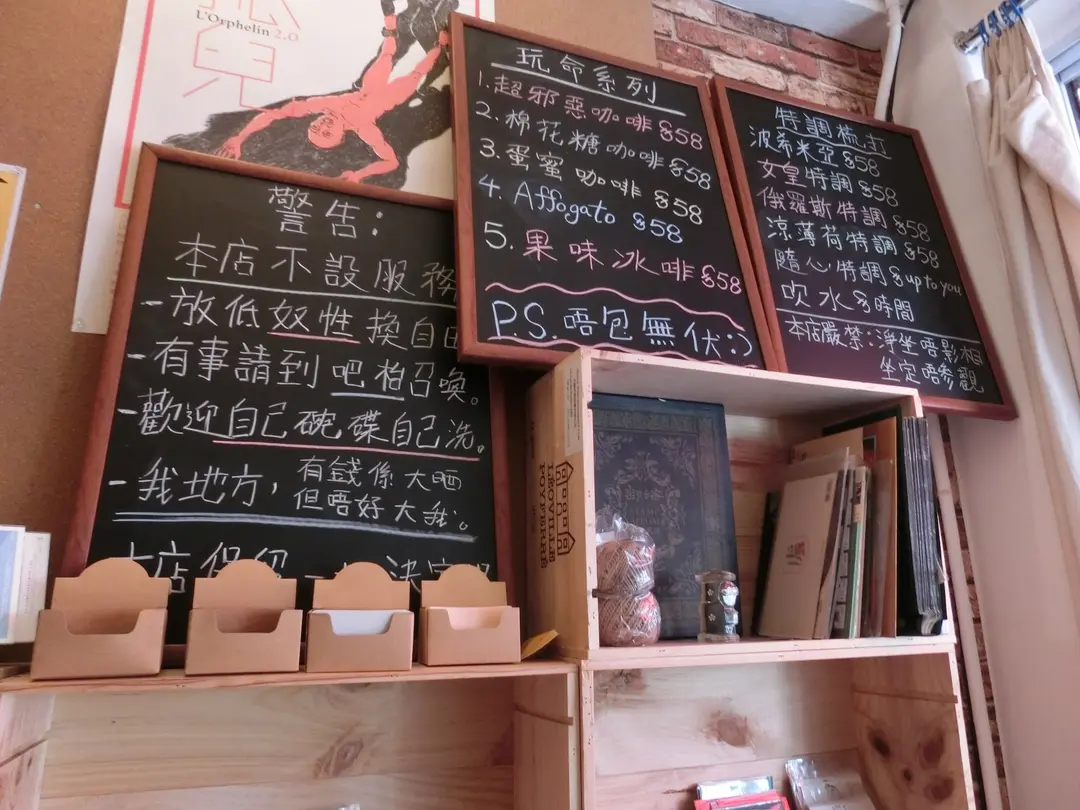 孤
兒
L'Orphelin 2.0
警告:
本店不設服務
- 放低奴性換自由
- 有事請到吧枱召喚。
- 歡迎自己碗碟自己洗。
- 我地方,有錢係大晒
但唔好大我。
本店保留
決定
玩命系列
1. 超邪惡咖啡 $58
2. 棉花糖咖啡 $58
3. 蛋蜜咖啡 $58
4. Affogato $58
5. 果味冰啡 $58
P.S. 唔包無伏:)
特調梳打
波希米亞 $58
女皇特調 $58
俄羅斯特調 $58
涼薄荷特調 $58
隨心特調 $ up to you
吹水 $ 時間
本店嚴禁:淨坐唔影相
坐定唔參觀
LEOVILLE
POYFERRE